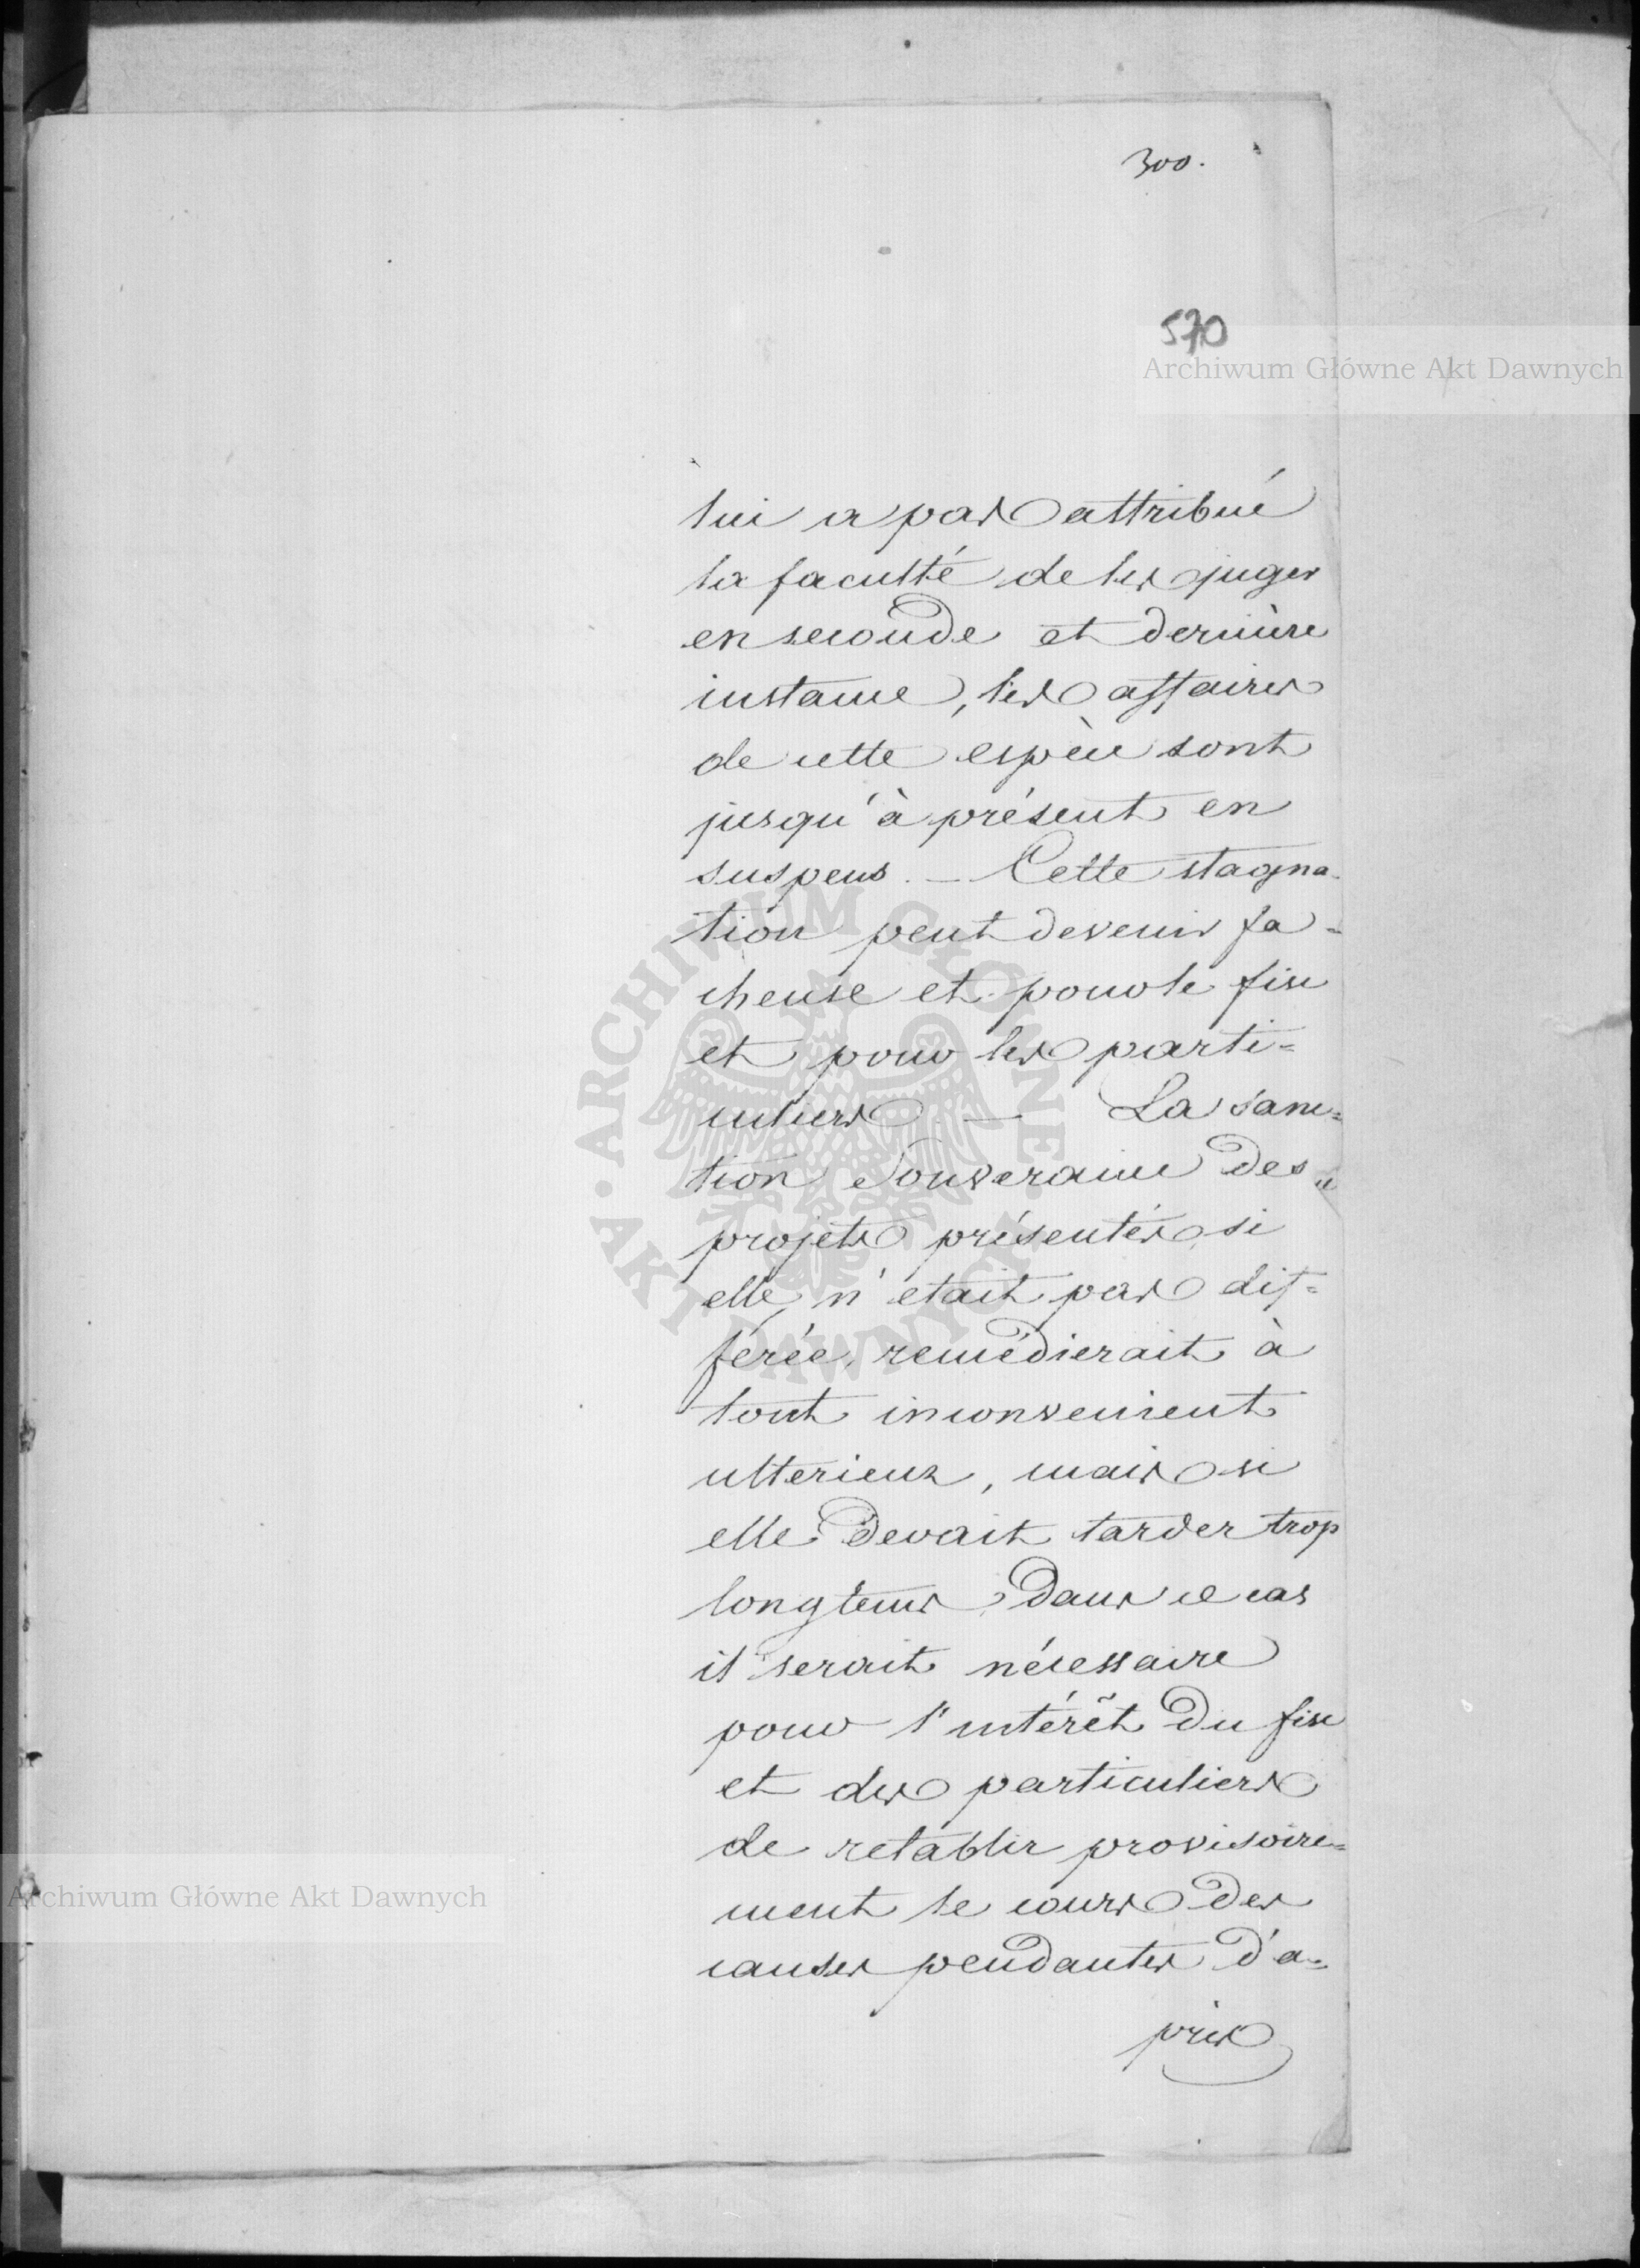 300.
570
Archiwum Główne Akt Dawnych
lui a pas attribué
la faculté de les juger
en seconde et dernière
instance, les affaires
de cette espèce sont
jusqu'à présent en
suspens. — Cette stagna-
tion peut devenir fa=
cheuse et pour le fisc
et pour les parti=
culiers — La sanc=
tion Souveraine des
projets présentés, si
elle n'etait pas dif=
férée, remédierait à
tout inconvenient
ulterieur, mais si
elle devait tarder trop
longtems, dans ce cas
il serait nécessaire
pour l'intérêt du fisc
et des particuliers
de retablir provisoire=
ment le cours des
causes pendantes d'a=
près
Archiwum Główne Akt Dawnych
ARCHIWUM GŁÓWNE AKT DAWNYCH